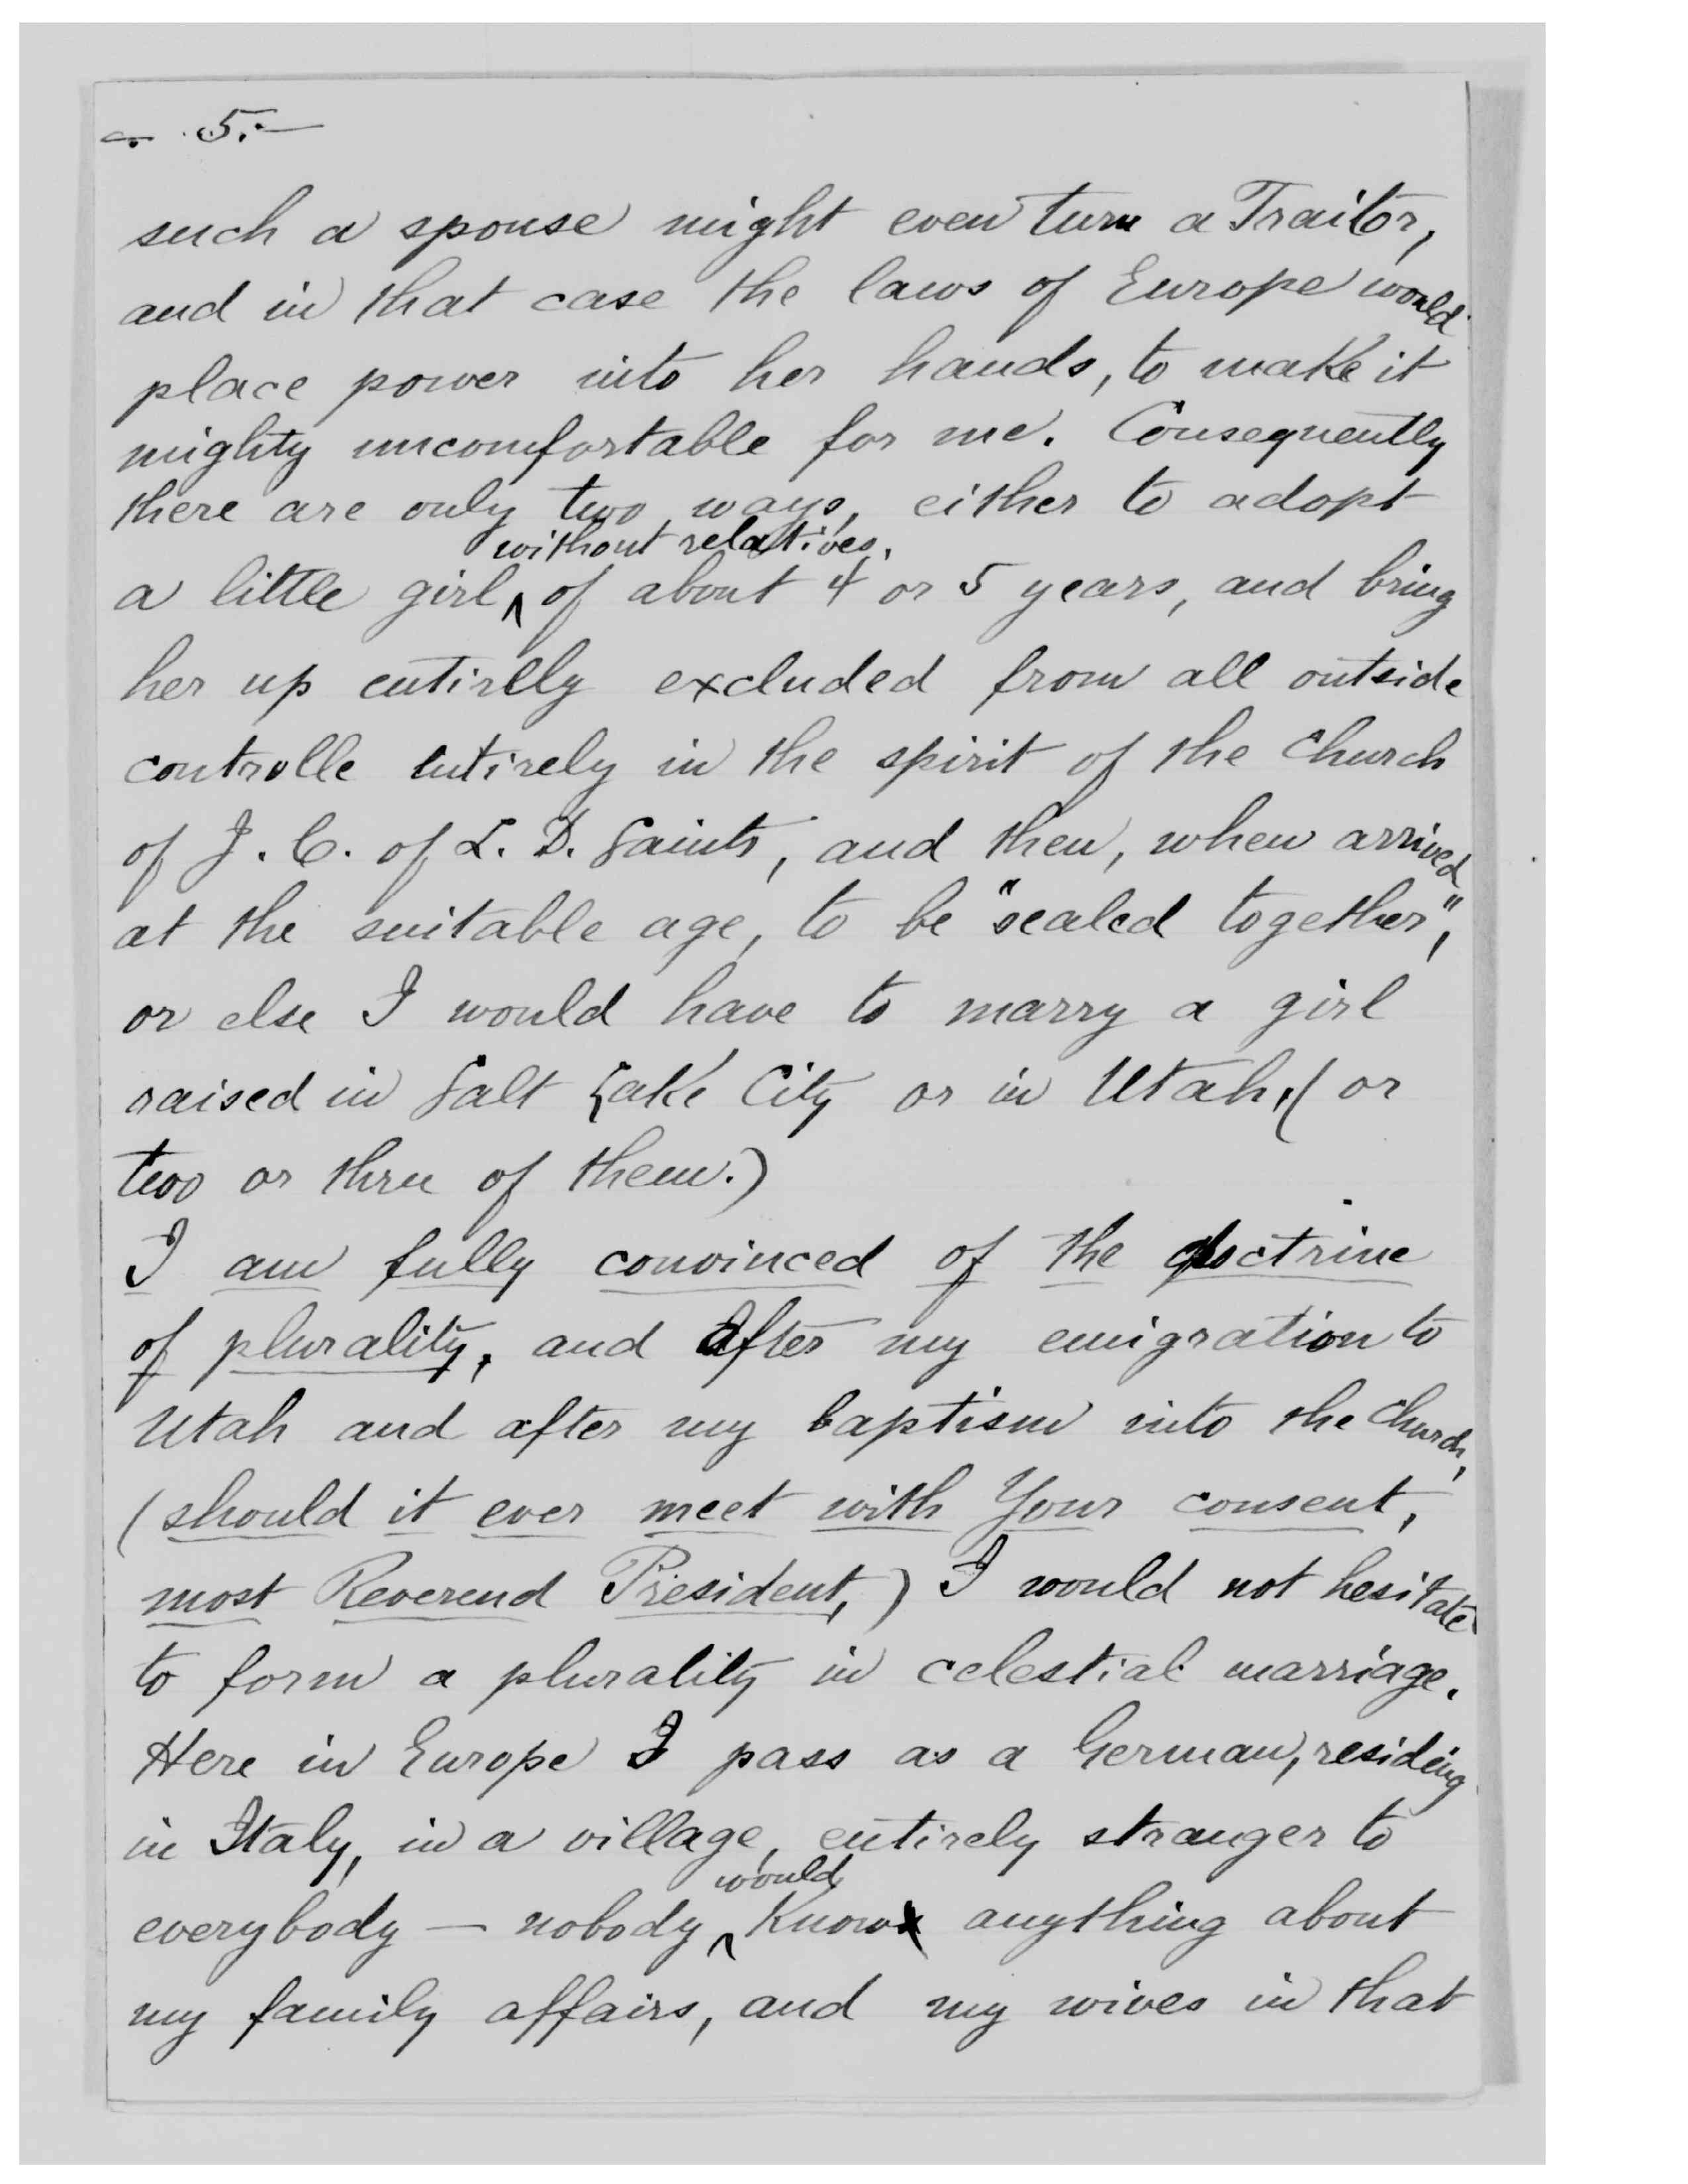 - 5.-
such a spouse might even turn a Traitor,
and in that case the laws of Europe would
place power into her hands, to make it
mighty uncomfortable for me. Consequently
there are only two ways, either to adopt
without relatives,
a little girl, of about 4 or 5 years, and bring
her up entirelly excluded from all outside
controlle entirely in the spirit of the Church
of J. C. of L. D. Saints, and then, when arrived
at the suitable age, to be "sealed together",
or else I would have to marry a girl
raised in Salt Lake City or in Utah, (or
two or three of them.)
I am fully convinced of the doctrine
of plurality, and after my emigration to
Utah and after my baptism into the Church,
(should it ever meet with Your consent,
most Reverend President,) I would not hesitate
to form a plurality in celestial marriage.
Here in Europe I pass as a German, residing
in Italy, in a village, entirely stranger to
would
everybody — nobody know anything about
my family affairs, and my wives in that